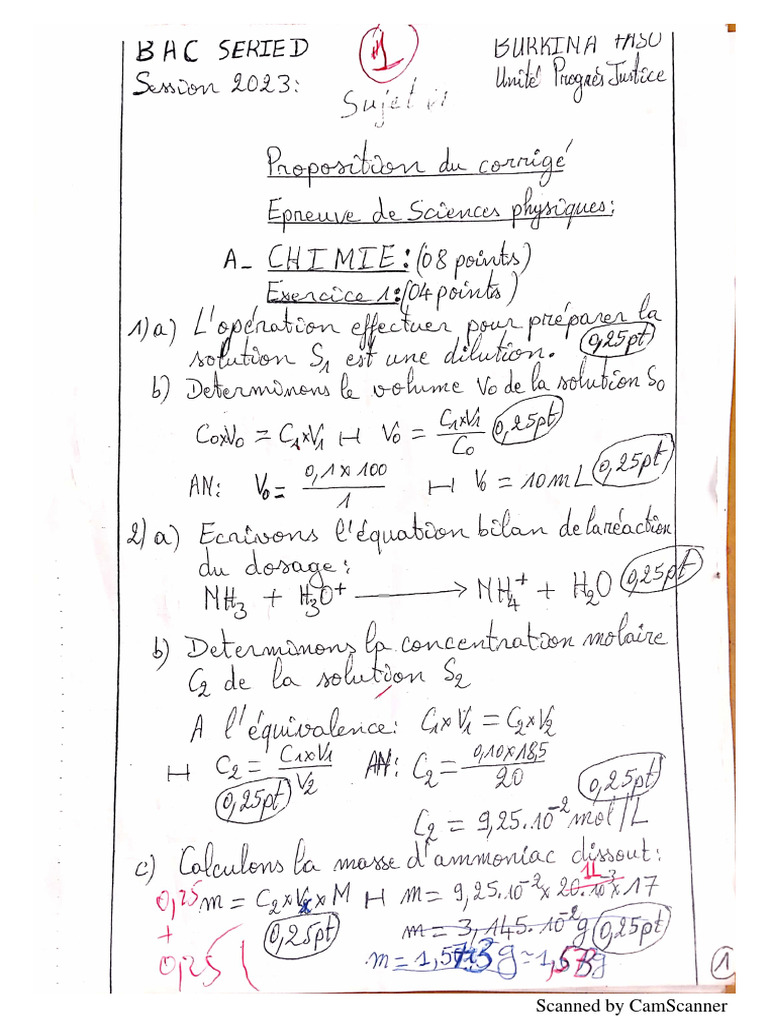 BAC SERIE D
1
BURKINA FASO
Session 2023:
Unité Progrès Justice
Sujet
Proposition du corrigé
Epreuve de Sciences physiques:
A_ CHIMIE: (08 points)
Exercice 1: (04 points)
1) a) L'opération effectuer pour préparer la
solution S1 est une dilution. 0,25pt
b) Determinons le volume V0 de la solution S0
C0xV0 = C1xV1 H V0 = C1xV1/C0 0,25pt
AN: V0 = 0,1 x 100/1 H V0 = 10mL 0,25pt
2) a) Ecrivons l'équation bilan de la réaction
du dosage:
NH3 + H3O+ → NH4+ + H2O 0,25pt
b) Determinons la concentration molaire
C2 de la solution S2
A l'équivalence: C1xV1 = C2xV2
H C2 = C1xV1/V2 AN: C2 = 0,10x18,5/20 0,25pt
0,25pt
C2 = 9,25.10^-2 mol/L
c) Calculons la masse d'ammoniac dissout:
0,25 m = C2xVxM H m = 9,25.10^-2 x 20.10^-3 x 17 1L
+ 0,25pt m = 3,145.10^-2 g 0,25pt
0,25 m = 1,573g ≈ 1,573g
1
Scanned by CamScanner